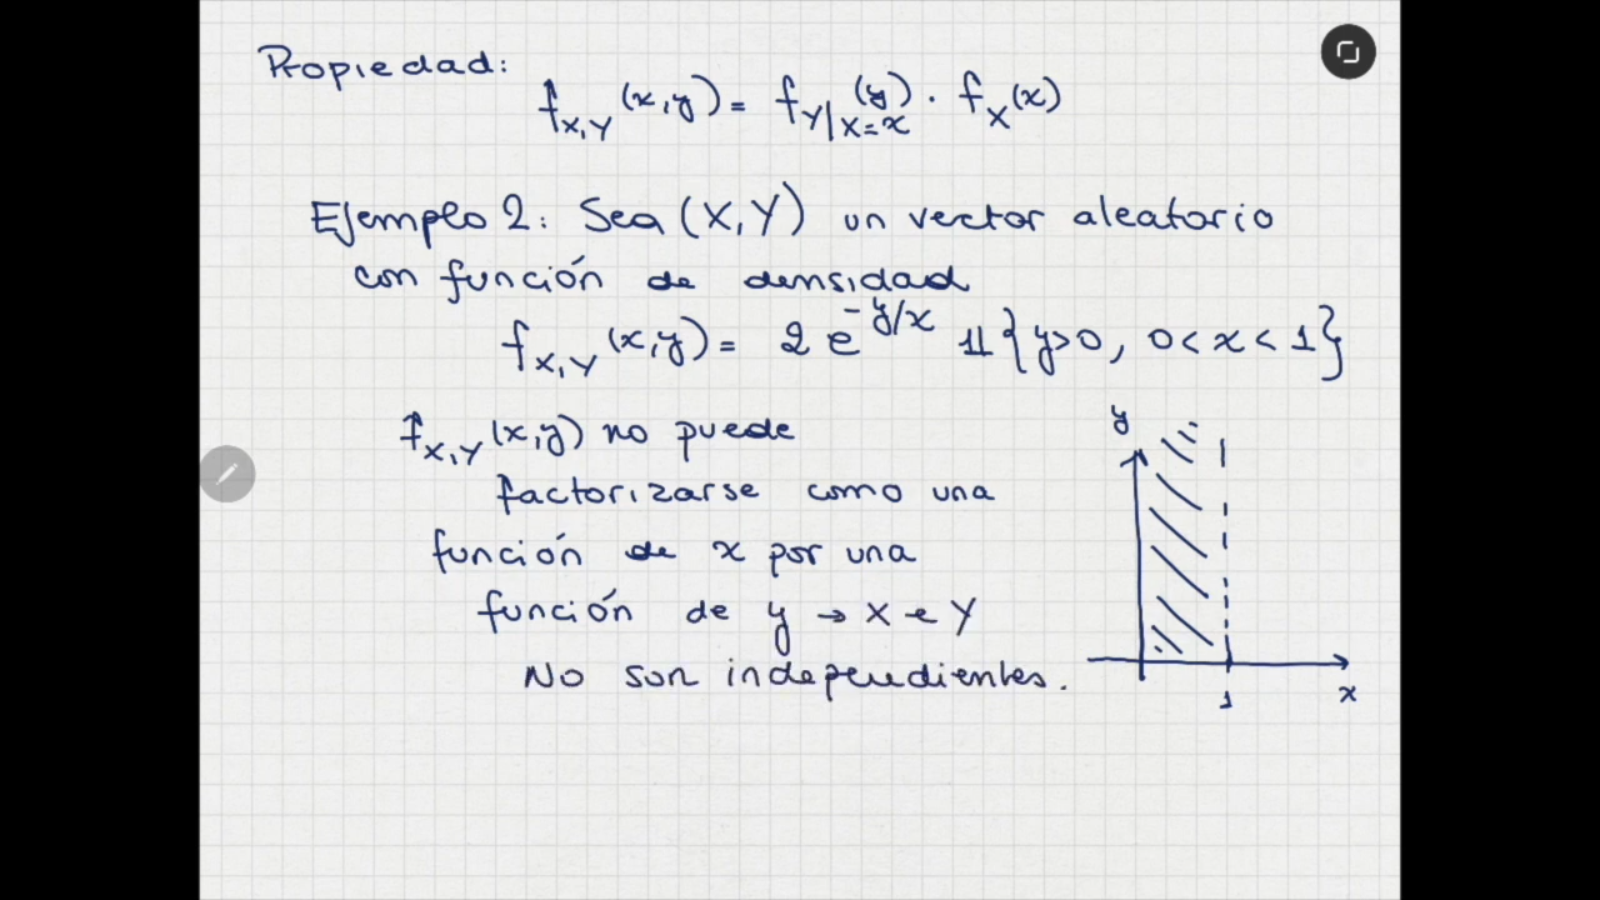 Propiedad:
f_{X,Y}(x,y) = f_{Y|X=x}(y) · f_X(x)
Ejemplo 2: Sea (X,Y) un vector aleatorio
con función de densidad
f_{X,Y}(x,y) = 2 e^{-y/x} 𝟙{y>0, 0<x<1}
f_{X,Y}(x,y) no puede
factorizarse como una
función de x por una
función de y → X e Y
No son independientes.
y
1
x